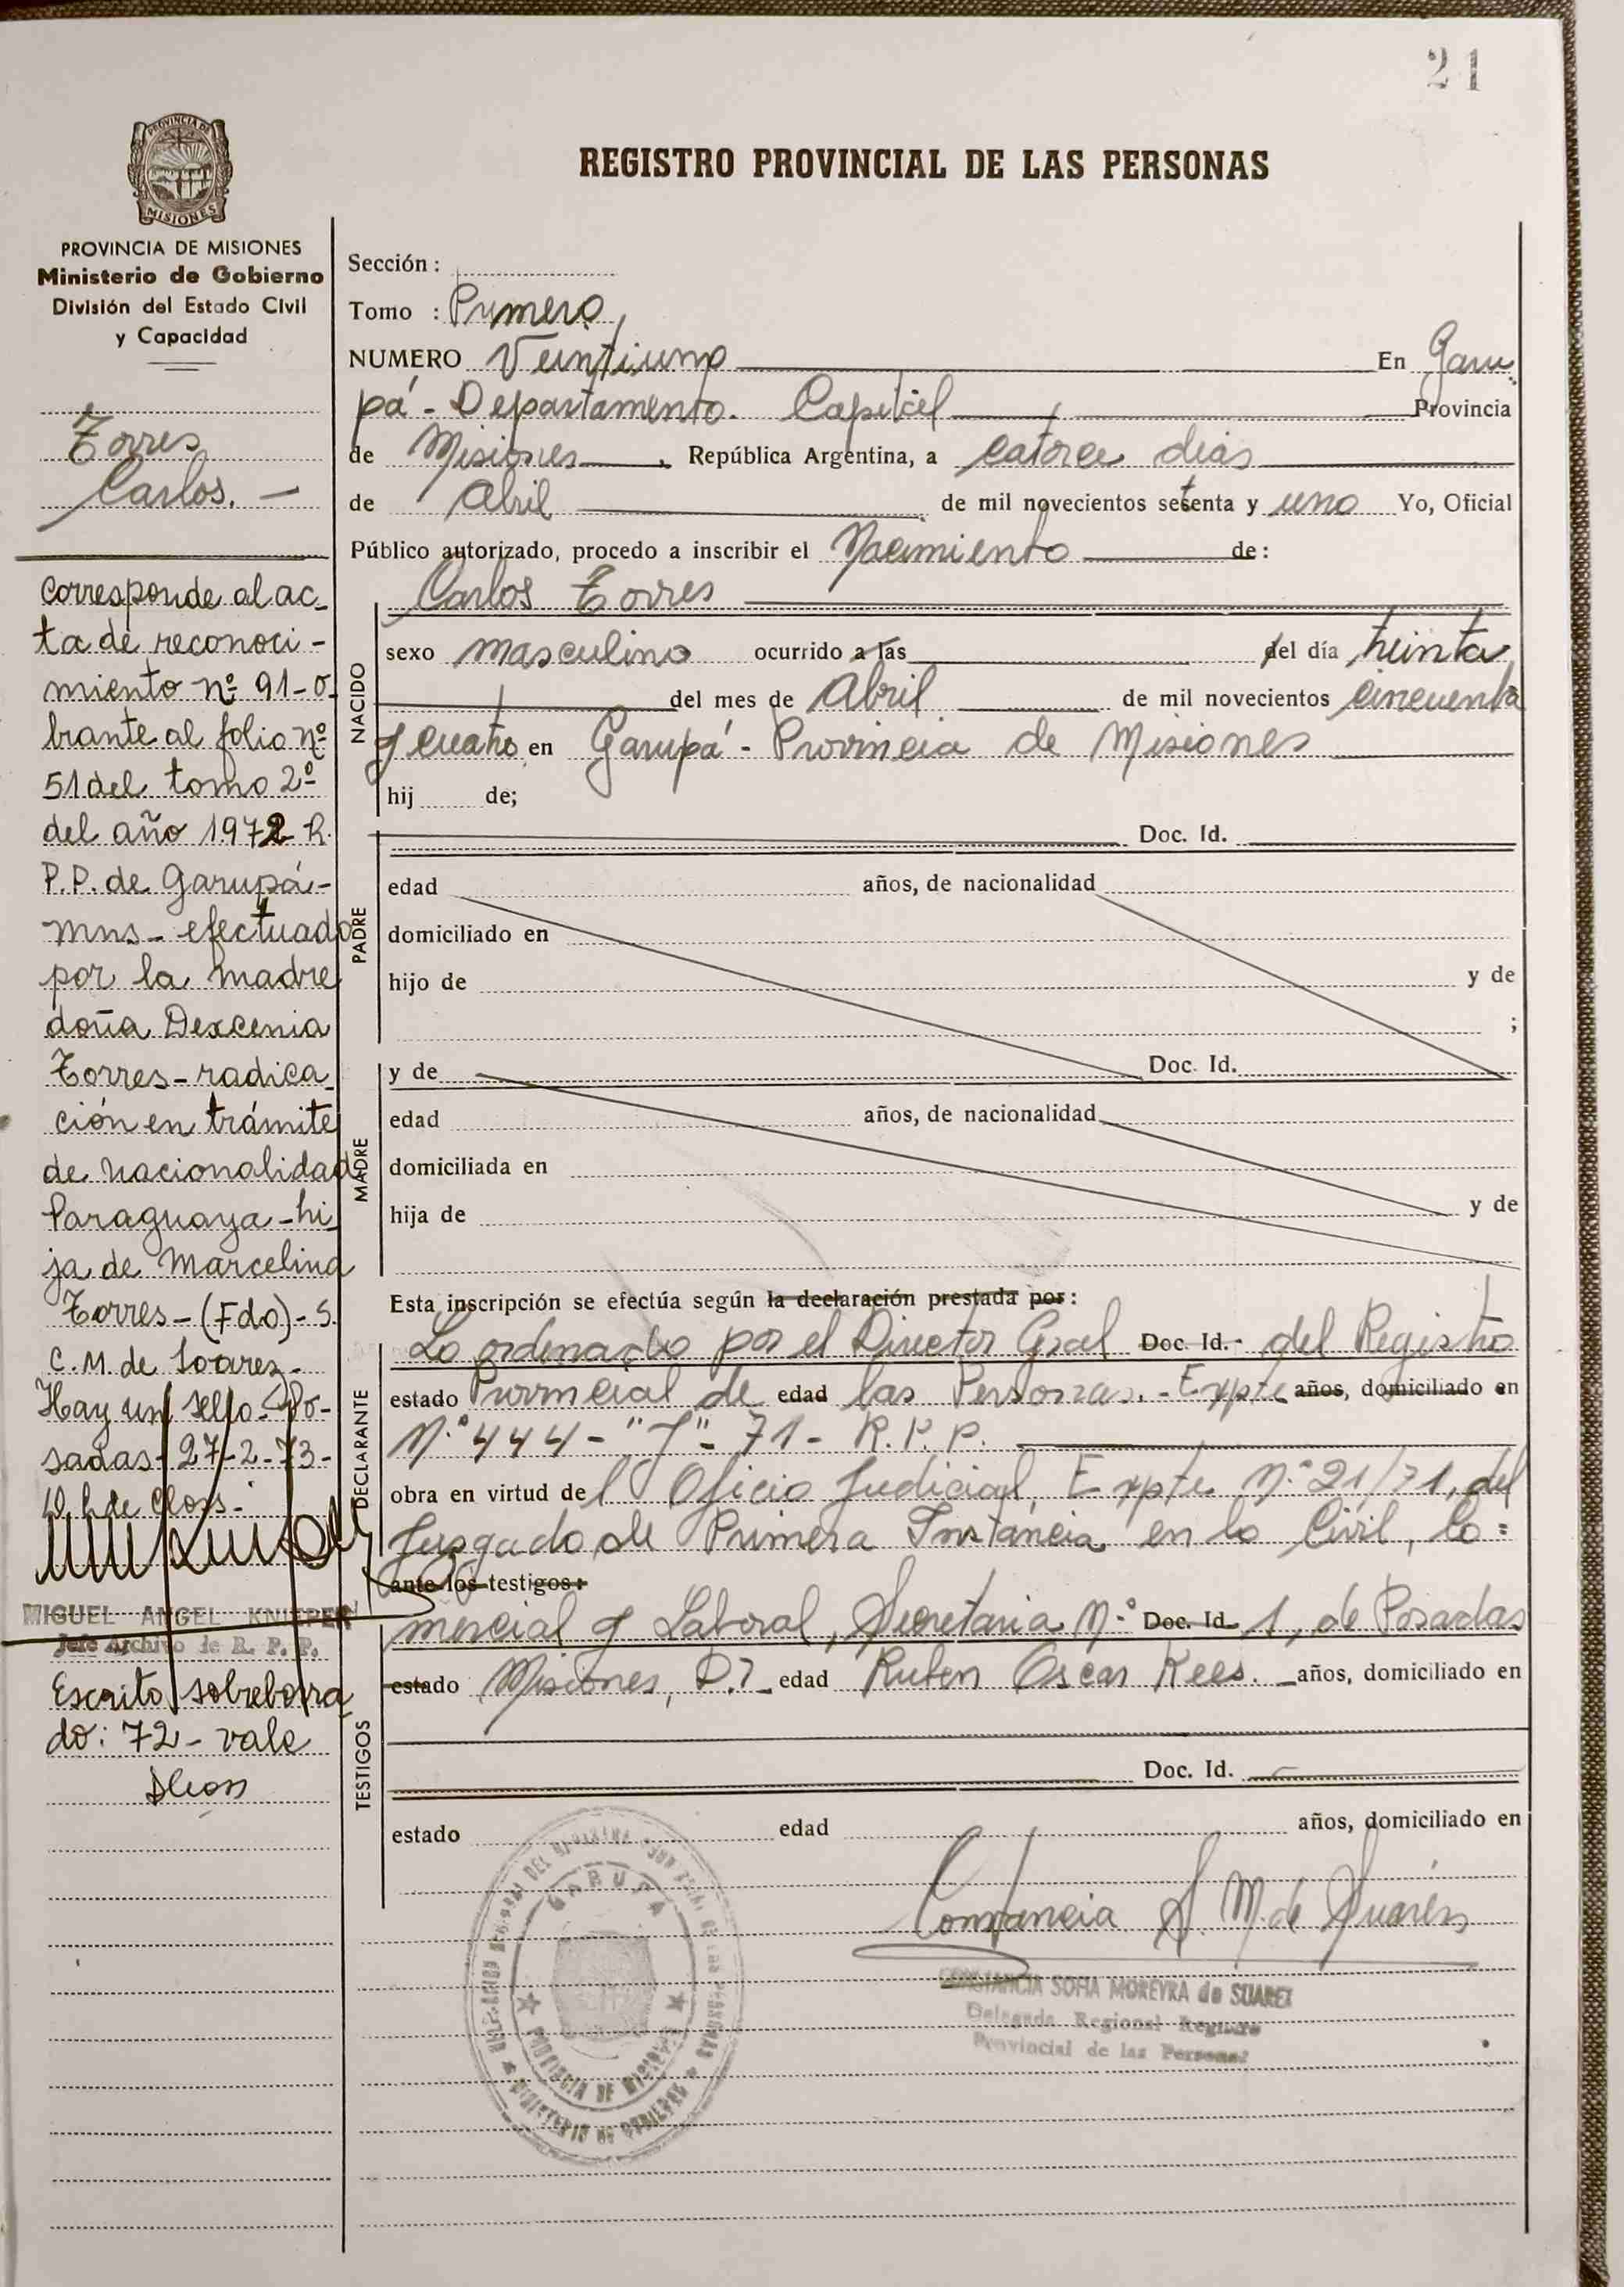 21
PROVINCIA DE
MISIONES
REGISTRO PROVINCIAL DE LAS PERSONAS
PROVINCIA DE MISIONES
Ministerio de Gobierno
División del Estado Civil
y Capacidad
Torres
Carlos. —
Corresponde al ac-
ta de reconoci-
miento nº 91-o-
brante al folio nº
51 del tomo 2º
del año 1972 R.
P.P. de Garupá-
mns- efectuado
por la madre
doña Dexcenia
Torres- radica-
ción en trámite
de nacionalidad
Paraguaya -hi-
ja de Marcelina
Torres- (Fdo)- S.
C.M. de Soarez-
Hay un sello- Po-
sadas- 27-2-73-
de Closs-
MIGUEL ANGEL KNIPPER
Jefe Archivo de R. P. P.
Escrito sobreborra
do: 72- vale
Sección :
Tomo : Primero
NUMERO Veintiuno En Garu-
pá - Departamento. Capital Provincia
de Misiones , República Argentina, a catorce dias
de Abril de mil novecientos setenta y uno Yo, Oficial
Público autorizado, procedo a inscribir el Nacimiento de:
NACIDO
Carlos Torres
sexo masculino ocurrido a las del día treinta
del mes de Abril de mil novecientos cincuenta
y cuatro en Garupá - Provincia de Misiones
hij de;
PADRE
Doc. Id.
edad años, de nacionalidad
domiciliado en
hijo de y de
;
MADRE
y de Doc. Id.
edad años, de nacionalidad
domiciliada en
hija de y de
Esta inscripción se efectúa según la declaración prestada por:
DECLARANTE
Lo ordenado por el Director Gral Doc. Id. del Registro
estado Provincial de edad las Personas. - Expte años, domiciliado en
N.º 444 - "T" - 71 - R. P. P.
obra en virtud del Oficio Judicial, Expte N.º 21/71, del
Juzgado de Primera Instancia en lo Civil, Co=
ante los testigos:
TESTIGOS
mercial y Laboral, Secretaria N.º Doc. Id. 1, de Posadas
estado Misiones, edad Ruben Oscar Rees. años, domiciliado en
Doc. Id.
estado edad años, domiciliado en
Constancia S. M. de Suárez
CONSTANCIA SOFIA MOREYRA de SUAREZ
Delegada Regional Registro
Provincial de las Personas
GARUPA
PROVINCIA DE MISIONES
MINISTERIO DE GOBIERNO